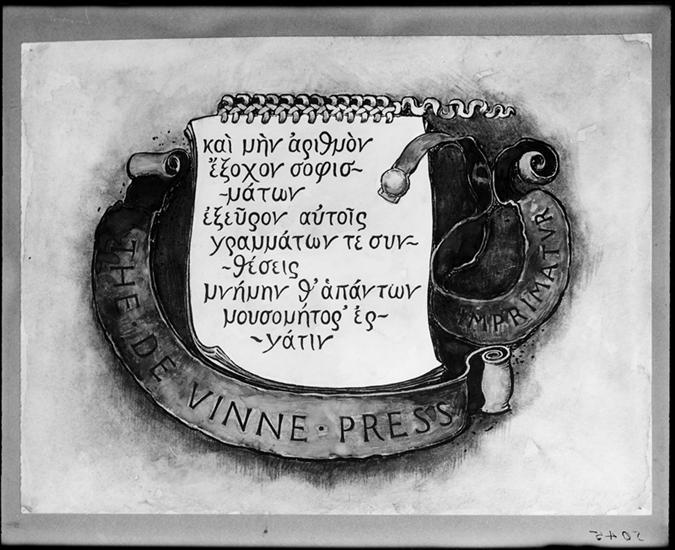 καὶ μὴν ἀριθμὸν
ἔξοχον σοφισ-
-μάτων
ἐξεῦρον αὐτοῖς
γραμμάτων τε συν-
-θέσεις
μνήμην θ' ἁπάντων
μουσομήτορ' ἐρ-
-γάτιν
THE · DE VINNE · PRESS
IMPRIMATVR